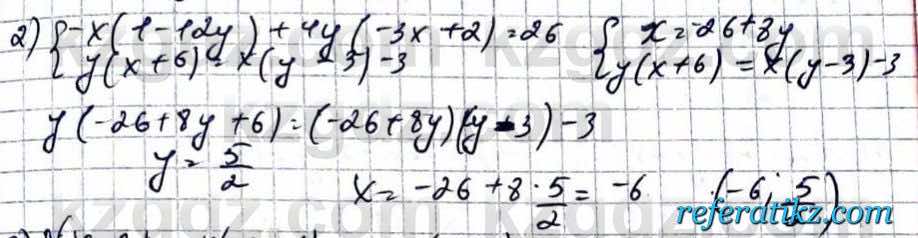 2) { -x(1-12y)+4y(-3x+2)=26   { x=-26+8y
{ y(x+6)=x(y-3)-3   { y(x+6)=x(y-3)-3
y(-26+8y+6)=(-26+8y)(y-3)-3
y= 5/2   x= -26+8·5/2= -6   (-6; 5/2)
referatikz.com